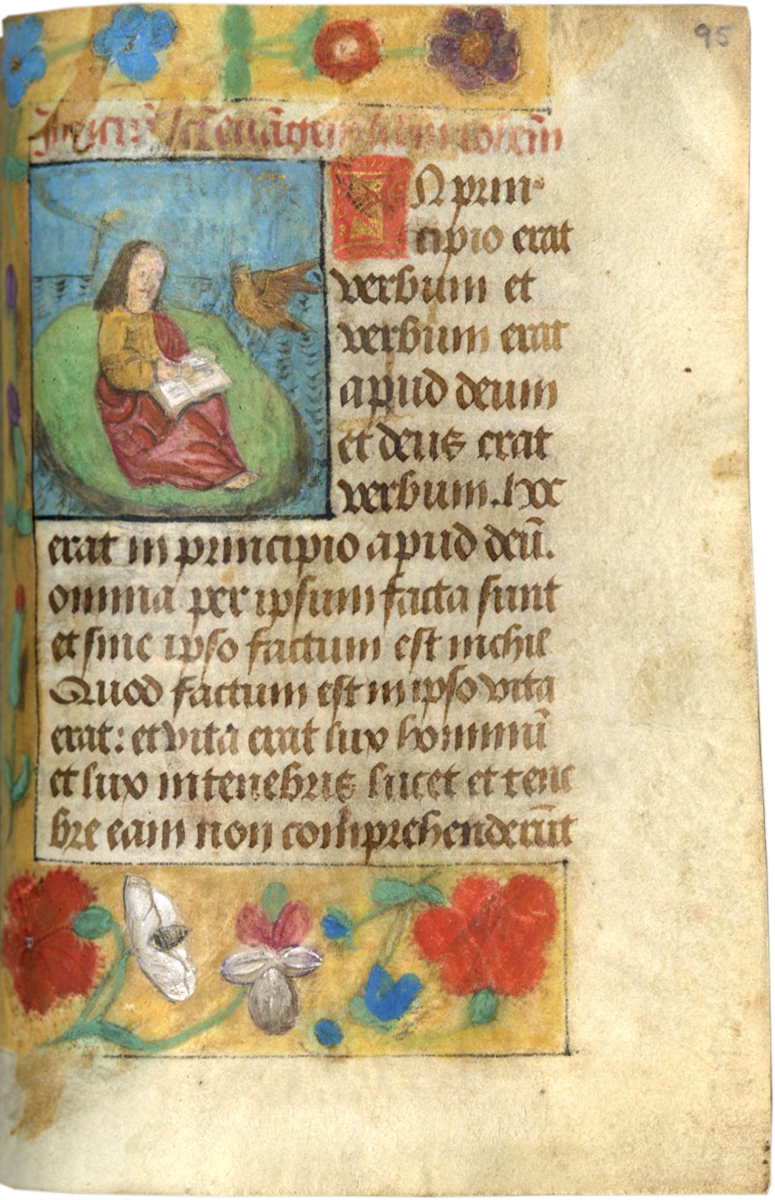 95
Iniciū scī euāgeii scdm iohem
IN prin-
cipio erat
verbum et
verbum erat
apud deum
et deus erat
verbum. hoc
erat in principio apud deū.
omnia per ipsum facta sunt
et sine ipso factum est nichil
Quod factum est in ipso vita
erat: et vita erat lux hominū
et lux in tenebris lucet et tene
bre eam non comprehenderūt